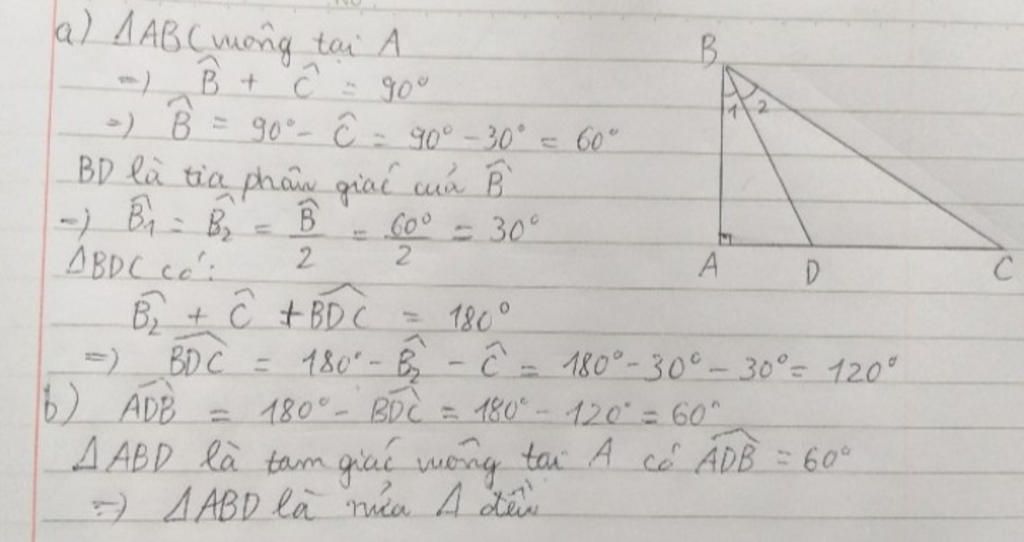 a) ΔABC vuông tại A
=> B̂ + Ĉ = 90°
=> B̂ = 90° - Ĉ = 90° - 30° = 60°
BD là tia phân giác của B̂
=> B̂₁ = B̂₂ = B̂/2 = 60°/2 = 30°
ΔBDC có:
B̂₂ + Ĉ + BDĈ = 180°
=> BDĈ = 180° - B̂₂ - Ĉ = 180° - 30° - 30° = 120°
b) ADB̂ = 180° - BDĈ = 180° - 120° = 60°
ΔABD là tam giác vuông tại A có ADB̂ = 60°
=> ΔABD là nửa Δ đều
B
1 2
A D C